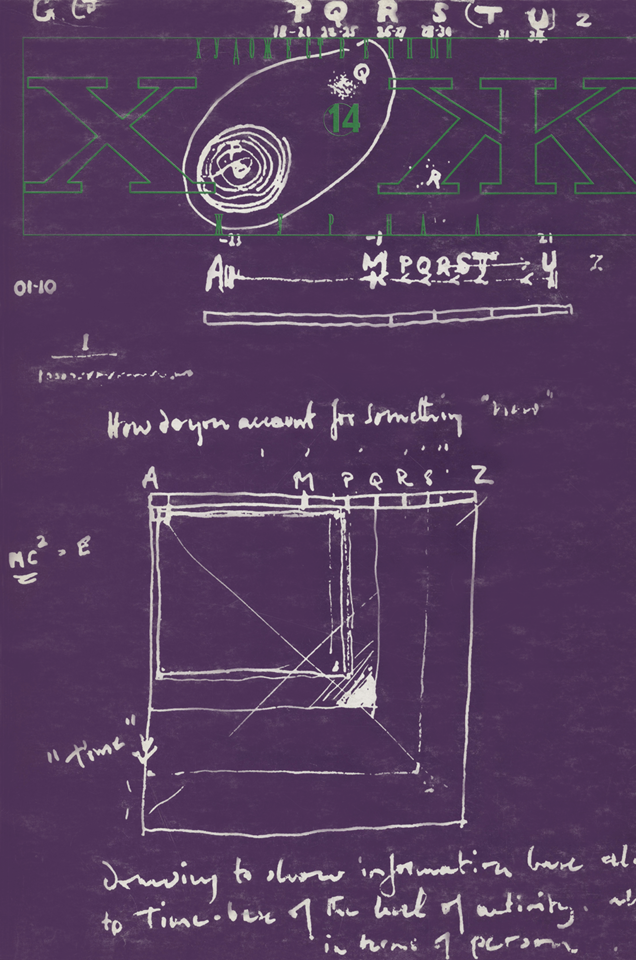 P Q R S (T U) Z
18-21 22-25 26-27 28-30 31
ХУДОЖЕСТВЕННЫЙ
Q
14
Х Ж
R
ЖУРНАЛ
A M P Q R S T U Z
01-10
1
How do you account for something "new"
A M P Q R S Z
MC² = E
"Time"
Drawing to show information base
to Time-base of the level of activity.
in terms of person